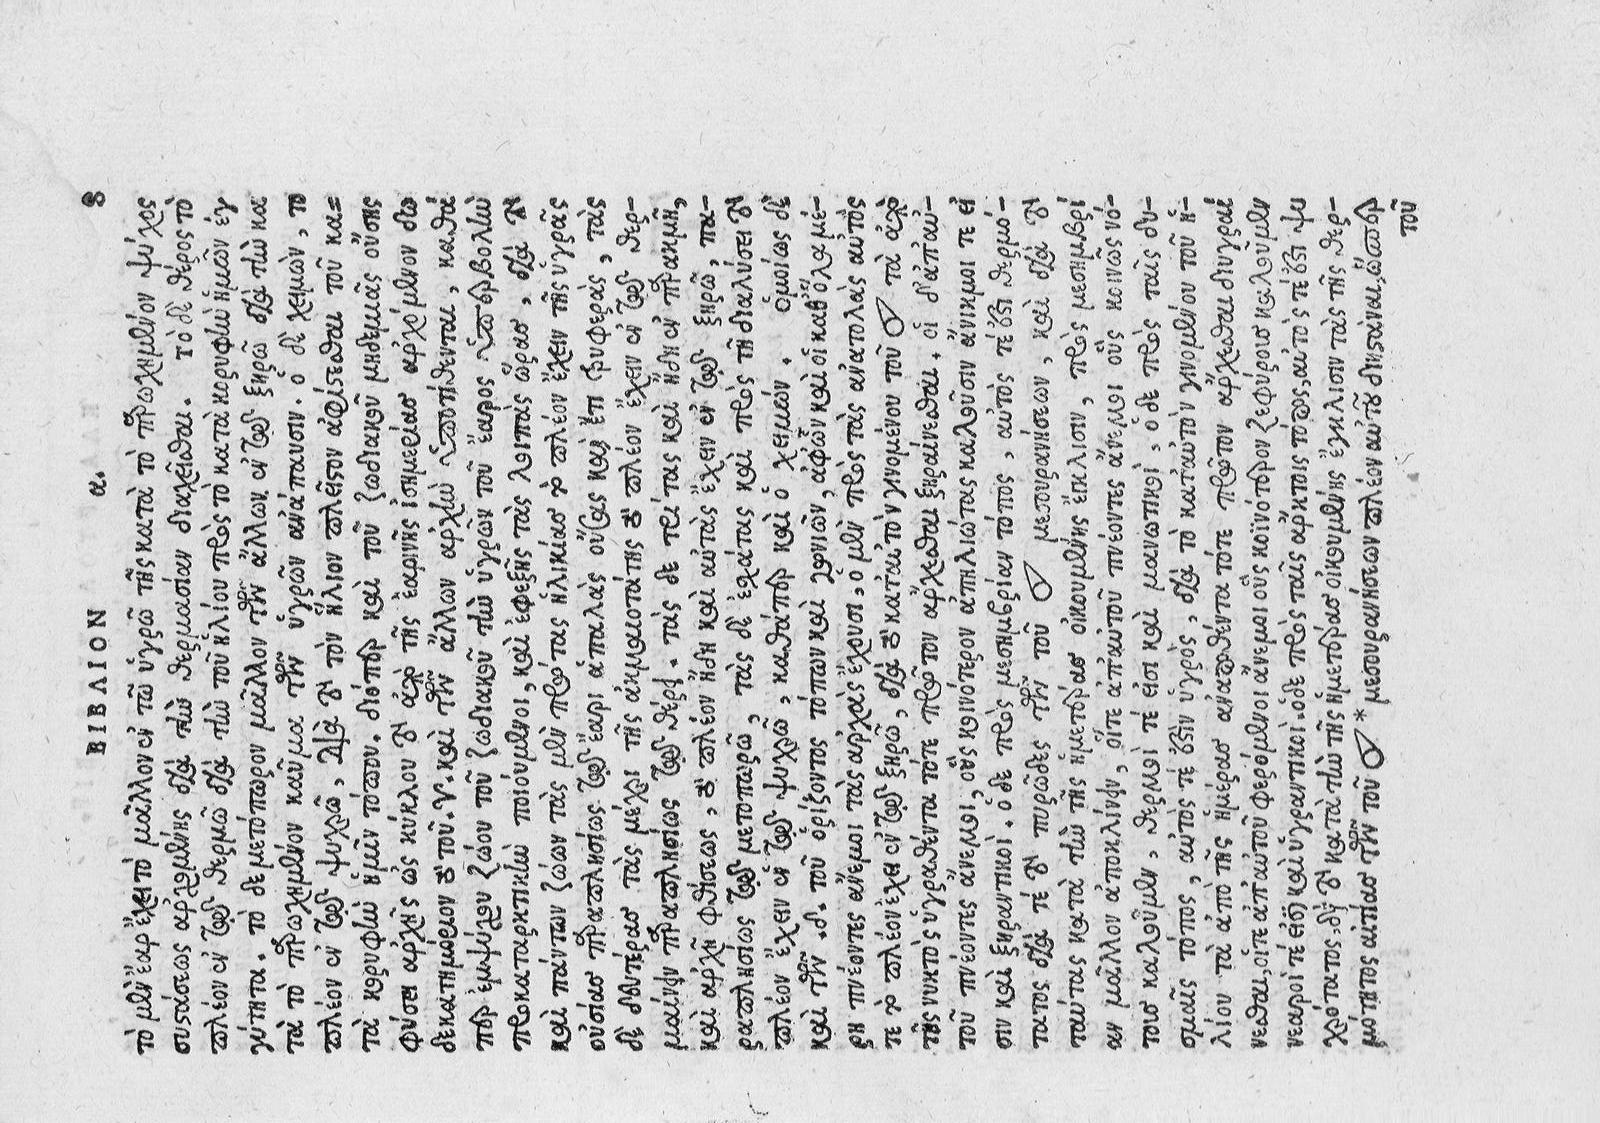 ΒΙΒΛΙΟΝ α. 8
τὸ μὲν ἔαρ ἔχει τὸ μᾶλλον ἐν τῷ ὑγρῷ τῆς κατὰ τὸ παρῳχημένον ψύχος
συστάσεως ἀρχομένης διὰ τὴν θερμασίαν διαχεῖσθαι. τὸ δὲ θέρος τὸ
πλέον ἐν τῷ θερμῷ διὰ τὴν τοῦ ἡλίου πρὸς τὸ κατὰ κορυφὴν ἡμῶν ἐγ
γύτητα. τὸ δε μετόπωρον μᾶλλον τῶν ἄλλων ἐν τῷ ξηρῷ διὰ τὴν κα
τὰ τὸ παρῳχημένον καῦμα τῶν ὑγρῶν ἀνάπαυσιν. ὁ δὲ χειμὼν, τὸ
πλέον ἐν τῷ ψυχρῷ, Διὰ τὸ τὸν ἥλιον πλεῖστον ἀφίστασθαι τοῦ κα=
τὰ κορυφὴν ἡμῖν τόπου. διόπερ καὶ τοῦ ζωδιακοῦ μηδεμιᾶς οὔσης
φύσει ἀρχῆς ὡς κύκλου τὸ ἀπὸ τῆς ἐαρινῆς ἰσημερίας ἀρχόμενον δω
δεκατημόριον τὸ τοῦ .γ. καὶ τῶν ἄλλων ἀρχὴν ὑποτίθενται, καθά
περ ἐμψύχου ζώου τοῦ ζωδιακοῦ τὴν ὑγρῶν τοῦ ἔαρος ὑπερβολὴν
προκαταρκτικὴν ποιούμενοι, καὶ ἐφεξῆς τὰς λοιπὰς ὥρας, διὰ τὸ
καὶ πάντων ζώων τὰς μὲν πρώτας ἡλικίας τὸ πλέον ἔχειν τῆς ὑγρᾶς
οὐσίας παραπλησίως τῷ ἔαρι ἁπαλὰς οὔσας καὶ ἔτι τρυφερὰς, τὰς
δὲ δευτέρας τὰς μέχρι τῆς ἀκμαιοτάτης τὸ πλέον ἔχειν ἐν τῷ θερ-
μαίνειν παραπλησίως τῷ θέρει. τὰς δε τρίτας καὶ ἤδη ἐν παρακμῇ,
καὶ ἀρχῇ φθίσεως, τὸ πλέον ἤδη καὶ αὐτὰς ἔχειν ἐν τῷ ξηρῷ, πα-
ραπλησίως τῷ μετοπώρῳ, τὰς δὲ ἐσχάτας καὶ πρὸς τῇ διαλύσει τὸ
πλέον ἔχειν ἐν τῷ ψυχρῷ, καθάπερ καὶ ὁ χειμών. ὁμοίως δὲ
καὶ τῶν .δ. τοῦ ὁρίζοντος τόπων καὶ γωνιῶν, ἀφ' ὧν καὶ οἱ καθ' ὅλα μέ-
ρη πνέοντες ἄνεμοι τὰς ἀρχὰς ἔχουσι, ὁ μὲν πρὸς τὰς ἀνατολὰς αὐτός
τε τὸ πλέον ἔχει ἐν τῷ ξηρῷ, διὰ τὸ κατ' αὐτὸν γινομένου τοῦ ☉ τὰ ἀπὸ
τῆς νυκτὸς ὑγρανθέντα τότε πρῶτον ἄρχεσθαι ξηραίνεσθαι. οἵ δ' ἀπ' αὐ-
τοῦ πνέοντες ἄνεμοι, οὓς κοινότερον ἀπηλιώτας καλοῦσιν ἄνικμοι τε εἰ
σιν καὶ ξηραντικοί. ὁ δε πρὸς μεσημβρίαν τόπος, αὐτός τέ ἐστι θερμό-
τατος διὰ τέ τὸ πυρῶδες τῶν τοῦ ☉ μεσουρανήσεων, καὶ διὰ τὸ
ταύτας κατὰ τὴν τῆς ἡμετέρας οἰκουμένης ἔγκλισιν, πρὸς μεσημβρί
αν μᾶλλον ἀποκλίνειν, οἵτε ἀπ' αὐτοῦ πνέοντες ἄνεμοι οὓς κοινῶς νό-
τους καλοῦμεν, θερμοί τέ εἰσι καὶ μανωτικοί, ὁ δε πρὸς ταῖς δυ-
σμαῖς τόπος, αὐτός τέ ἐστιν ὑγρός, διὰ τὸ κατ' αὐτὸν γινομένου τοῦ ἡ-
λίου τὰ ἀπὸ τῆς ἡμέρας ἀναποθέντα τότε πρῶτον ἄρχεσθαι διυγραί
νεσθαι, οἵτε ἀπ' αὐτοῦ φερόμενοι ἄνεμοι οὓς κοινότερον ζεφύρους καλοῦμεν
νεαροί τέ εἰσι καὶ ὑγραντικοί. ὁ δε πρὸς ταῖς ἄρκτοις τόπος αὐτός τέ ἐστι ψυ
χρότατος, διὰ τὸ κατὰ τὴν τῆς ἡμετέρας οἰκουμένης ἔγκλισιν τὰς τῆς θερ-
μότητος αἰτίας τῶν τοῦ ☉ * μεσουρανήσεων πλέον αὐτοῦ διεστάναι, ὥσπερ
τοῦ